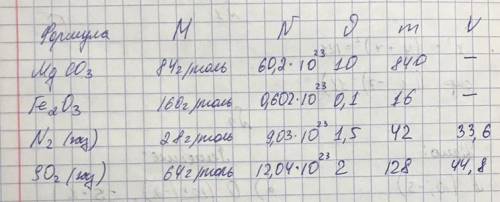 Формула M N ϑ m V
MgCO₃ 84г/моль 60,2·10²³ 10 840 –
Fe₂O₃ 160г/моль 0,602·10²³ 0,1 16 –
N₂ (газ) 28г/моль 9,03·10²³ 1,5 42 33,6
SO₂ (газ) 64г/моль 12,04·10²³ 2 128 44,8